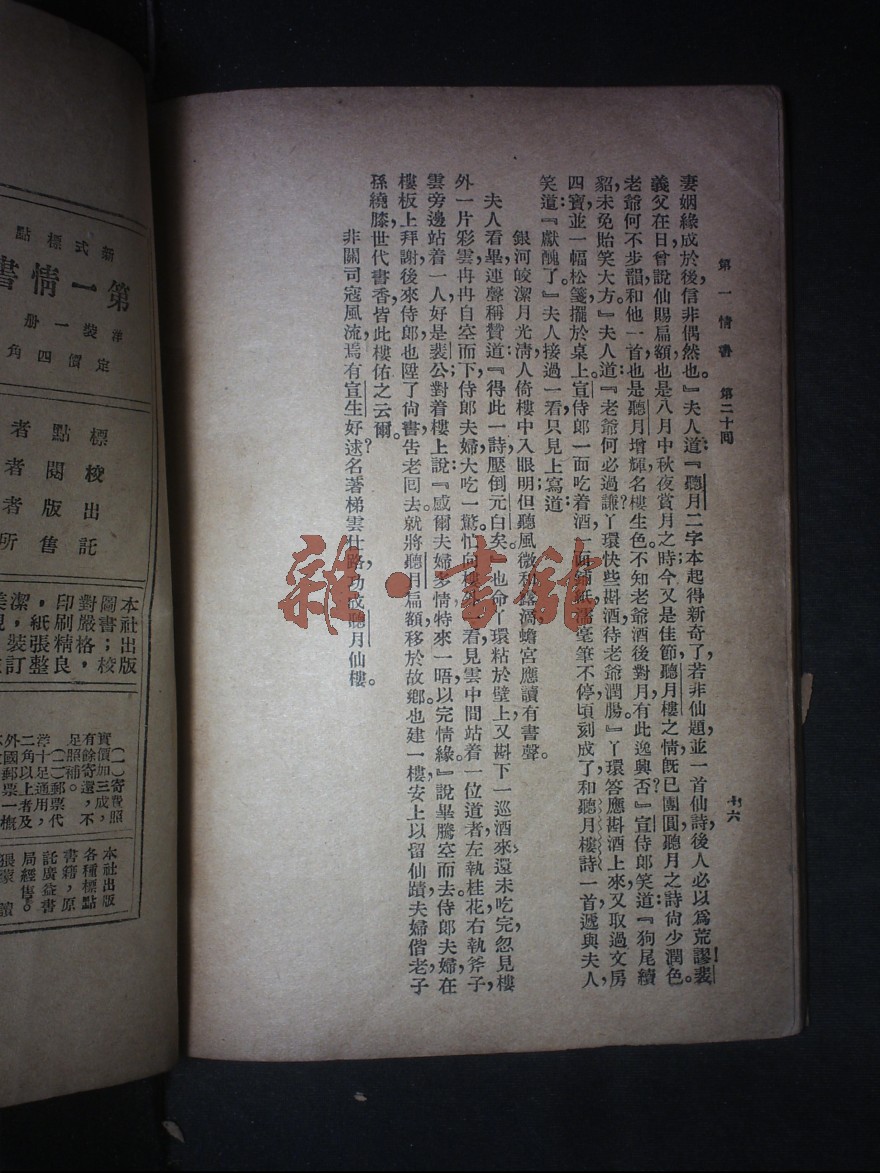 第一情書　第二十回
十六
妻姻緣成於後信非偶然也。』夫人道：『聽月二字本起得新奇了，若非仙題，並一首仙詩，後人必以爲荒謬。裴
義父在日曾說仙賜扁額，也是八月中秋夜賞月之時，今又是佳節，聽月樓之情旣已團圓，聽月之詩尙少潤色。
老爺何不步韻和他一首，也是聽月增輝，名樓生色。不知老爺酒後對月，有此逸興否？』宣侍郎笑道：『狗尾續
貂，未免貽笑大方。』夫人道：『老爺何必過謙？丫環快些斟酒，待老爺潤腸。』丫環答應斟酒上來，又取過文房
四寶，並一幅松箋，擺於桌上。宣侍郎一面吃着酒，一面鋪紙濡毫，筆不停，頃刻成了，和聽月樓詩一首，遞與夫人，
笑道：『獻醜了。』夫人接過一看，只見上寫道：
銀河皎潔月光淸，人倚樓中入眼明，但聽風微和露滴，蟾宮應讀有書聲。
夫人看畢，連聲稱贊道：『得此一詩，壓倒元白矣。』也命丫環粘於壁上，又斟下一巡酒來，還未吃完，忽見樓
外一片彩雲，冉冉自空而下，侍郎夫婦大吃一驚，忙向樓外一看，見雲中間站着一位道者，左執桂花，右執斧子，
雲旁邊站着一人，好是裴公，對着樓上說：『感爾夫婦多情，特來一唔，以完情緣。』說畢騰空而去。侍郎夫婦在
樓板上拜謝，後來侍郎也陞了尙書，告老回去。就將聽月扁額，移於故鄉。也建一樓，安上以留仙蹟，夫婦偕老，子
孫繞膝，世代書香，皆此樓佑之云爾。
非關司寇風流，焉有宣生好逑？名著梯雲仕路，功成聽月仙樓。
新式標點
第一情書
洋裝一册
定價四角
標點者
校閱者
出版者
託售所
本社出版
圖書；校
對嚴格，
印刷精良，
潔，紙張
裝訂整
實價加三成
有餘寄還，不
足照補。
洋十足通用，
二角以上者
外國郵票一概
本社出版
各種標點
書籍，原
託廣益書
局經售。
雜·書館